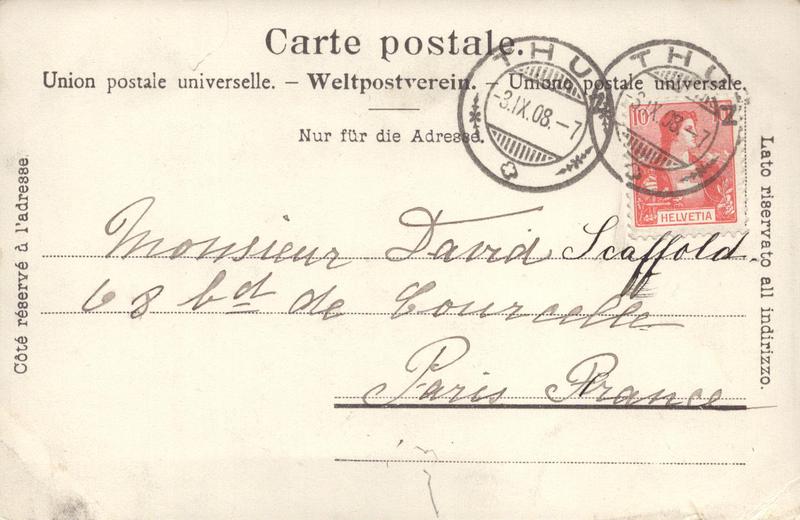 Carte postale.
Union postale universelle. – Weltpostverein. – Unione postale universale.
Nur für die Adresse.
Côté réservé à l'adresse.
Lato riservato all indirizzo.
THUN
-3.IX.08.-7
THUN
-3.IX.08.-7
10
HELVETIA
Monsieur David Scaffold
68 bd de Courcelle
Paris France